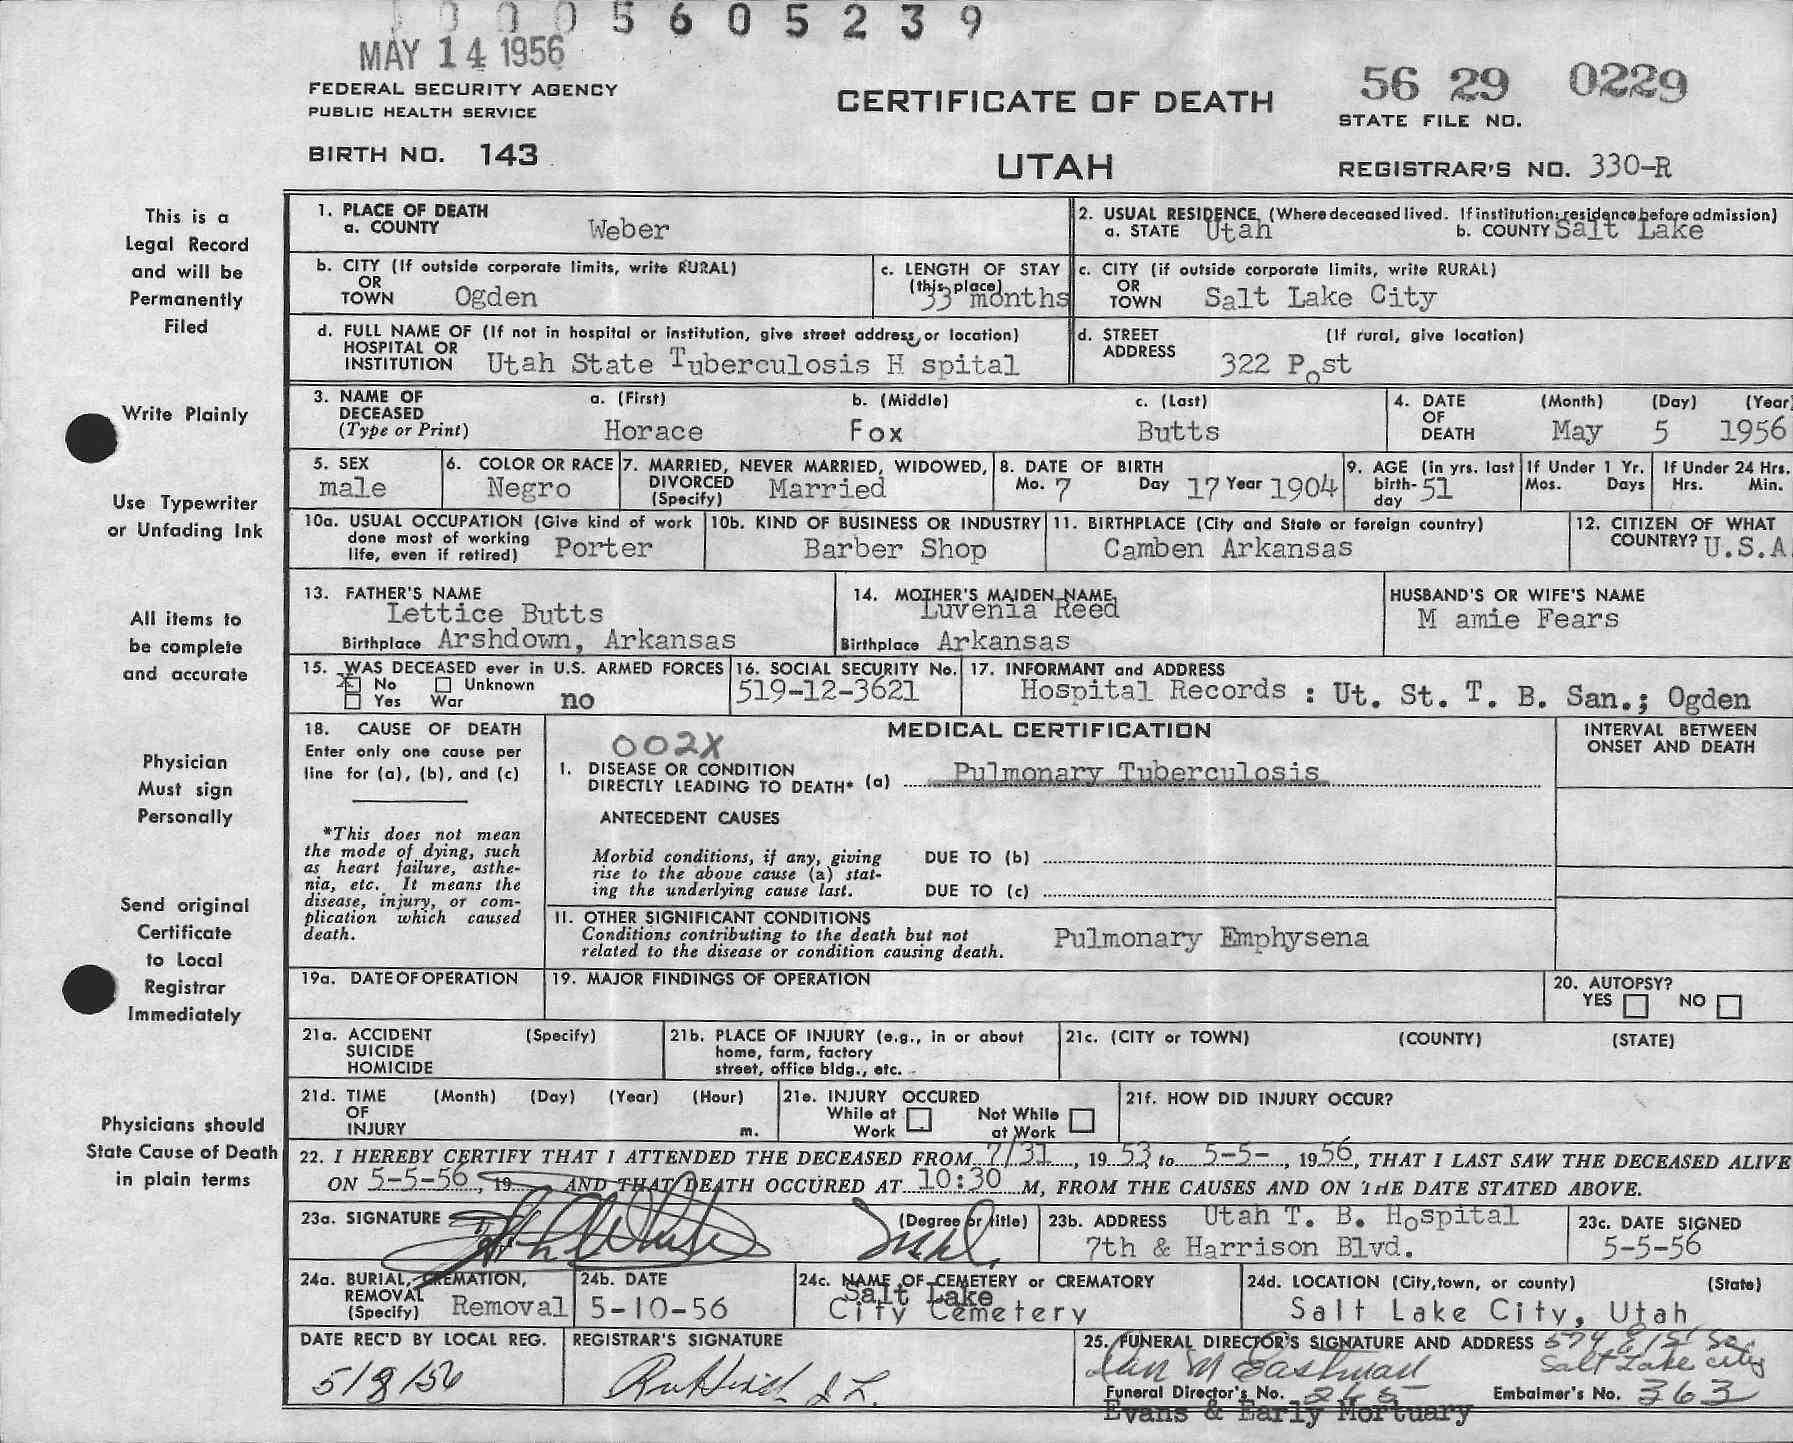 0 0 0 5 6 0 5 2 3 9
MAY 14 1956
FEDERAL SECURITY AGENCY
PUBLIC HEALTH SERVICE
BIRTH NO. 143
CERTIFICATE OF DEATH
UTAH
56 29 0229
STATE FILE NO.
REGISTRAR'S NO. 330-R
This is a
Legal Record
and will be
Permanently
Filed
Write Plainly
Use Typewriter
or Unfading Ink
All items to
be complete
and accurate
Physician
Must sign
Personally
Send original
Certificate
to Local
Registrar
Immediately
Physicians should
State Cause of Death
in plain terms
1. PLACE OF DEATH
a. COUNTY Weber
2. USUAL RESIDENCE (Where deceased lived. If institution: residence before admission)
a. STATE Utah b. COUNTY Salt Lake
b. CITY (If outside corporate limits, write RURAL)
OR
TOWN Ogden
c. LENGTH OF STAY
(this place)
33 months
c. CITY (if outside corporate limits, write RURAL)
OR
TOWN Salt Lake City
d. FULL NAME OF (If not in hospital or institution, give street address, or location)
HOSPITAL OR
INSTITUTION Utah State Tuberculosis H spital
d. STREET (If rural, give location)
ADDRESS 322 Post
3. NAME OF DECEASED (Type or Print)
a. (First) b. (Middle) c. (Last)
Horace Fox Butts
4. DATE OF DEATH (Month) (Day) (Year)
May 5 1956
5. SEX
male
6. COLOR OR RACE
Negro
7. MARRIED, NEVER MARRIED, WIDOWED,
DIVORCED
(Specify) Married
8. DATE OF BIRTH
Mo. 7 Day 17 Year 1904
9. AGE (in yrs. last
birth-
day 51
If Under 1 Yr.
Mos. Days
If Under 24 Hrs.
Hrs. Min.
10a. USUAL OCCUPATION (Give kind of work
done most of working
life, even if retired) Porter
10b. KIND OF BUSINESS OR INDUSTRY
Barber Shop
11. BIRTHPLACE (City and State or foreign country)
Camben Arkansas
12. CITIZEN OF WHAT
COUNTRY? U.S.A.
13. FATHER'S NAME
Lettice Butts
Birthplace Arshdown, Arkansas
14. MOTHER'S MAIDEN NAME
Luvenia Reed
Birthplace Arkansas
HUSBAND'S OR WIFE'S NAME
M amie Fears
15. WAS DECEASED ever in U.S. ARMED FORCES
X No Unknown
Yes War no
16. SOCIAL SECURITY No.
519-12-3621
17. INFORMANT and ADDRESS
Hospital Records : Ut. St. T. B. San.; Ogden
18. CAUSE OF DEATH
Enter only one cause per
line for (a), (b), and (c)
*This does not mean
the mode of dying, such
as heart failure, asthe-
nia, etc. It means the
disease, injury, or com-
plication which caused
death.
MEDICAL CERTIFICATION
002X
I. DISEASE OR CONDITION
DIRECTLY LEADING TO DEATH* (a) Pulmonary Tuberculosis
ANTECEDENT CAUSES
Morbid conditions, if any, giving
rise to the above cause (a) stat-
ing the underlying cause last.
DUE TO (b)
DUE TO (c)
II. OTHER SIGNIFICANT CONDITIONS
Conditions contributing to the death but not
related to the disease or condition causing death.
Pulmonary Emphysena
INTERVAL BETWEEN
ONSET AND DEATH
19a. DATE OF OPERATION
19. MAJOR FINDINGS OF OPERATION
20. AUTOPSY?
YES NO
21a. ACCIDENT (Specify)
SUICIDE
HOMICIDE
21b. PLACE OF INJURY (e.g., in or about
home, farm, factory
street, office bldg., etc.
21c. (CITY or TOWN) (COUNTY) (STATE)
21d. TIME (Month) (Day) (Year) (Hour)
OF
INJURY m.
21e. INJURY OCCURED
While at Work Not While at Work
21f. HOW DID INJURY OCCUR?
22. I HEREBY CERTIFY THAT I ATTENDED THE DECEASED FROM 7/31, 19 53, to 5-5-, 1956, THAT I LAST SAW THE DECEASED ALIVE
ON 5-5-56, 19 AND THAT DEATH OCCURED AT 10:30 M, FROM THE CAUSES AND ON THE DATE STATED ABOVE.
23a. SIGNATURE (Degree or title)
23b. ADDRESS Utah T. B. Hospital
7th & Harrison Blvd.
23c. DATE SIGNED
5-5-56
24a. BURIAL, CREMATION,
REMOVAL
(Specify) Removal
24b. DATE
5-10-56
24c. NAME OF CEMETERY or CREMATORY
Salt Lake
City Cemetery
24d. LOCATION (City, town, or county) (State)
Salt Lake City, Utah
DATE REC'D BY LOCAL REG.
5/8/56
REGISTRAR'S SIGNATURE
25. FUNERAL DIRECTOR'S SIGNATURE AND ADDRESS 574 E 1st So.
Eastman Salt Lake City
Funeral Director's No. 265 Embalmer's No. 363
Evans & Early Mortuary